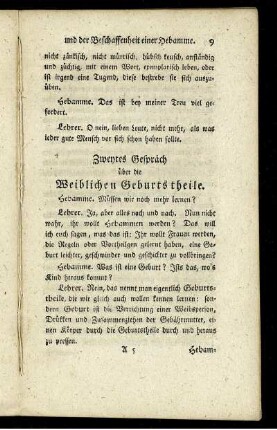 und der Beschaffenheit einer Hebamme. 9
nicht zänkisch, nicht mürrisch, hübsch keusch, anständig
und züchtig, mit einem Wort, exemplarisch leben, oder
ist irgend eine Tugend, diese bestrebe sie sich auszu-
üben.
Hebamme. Das ist bey meiner Treu viel ge-
fordert.
Lehrer. O nein, lieben Leute, nicht mehr, als was
jeder gute Mensch vor sich schon haben sollte.
Zweytes Gespräch
über die
Weiblichen Geburtstheile.
Hebamme. Müssen wir noch mehr lernen?
Lehrer. Ja, aber alles nach und nach. Nun nicht
wahr, ihr wollt Hebammen werden? Das will
ich euch sagen, was das ist: Ihr wollt Frauen werden,
die Regeln oder Vortheilgen gelernt haben, eine Ge-
burt leichter, geschwinder und geschickter zu vollbringen?
Hebamme. Was ist eine Geburt? Ists das, wo's
Kind heraus kommt?
Lehrer. Nein, das nennt man eigentlich Geburts-
theile, die wir gleich auch wollen kennen lernen: son-
dern Geburt ist die Verrichtung einer Weibsperson,
Drükken und Zusammenziehen der Gebährmutter, ei-
nen Körper durch die Geburtstheile durch und heraus
zu pressen.
A 5 Hebam-